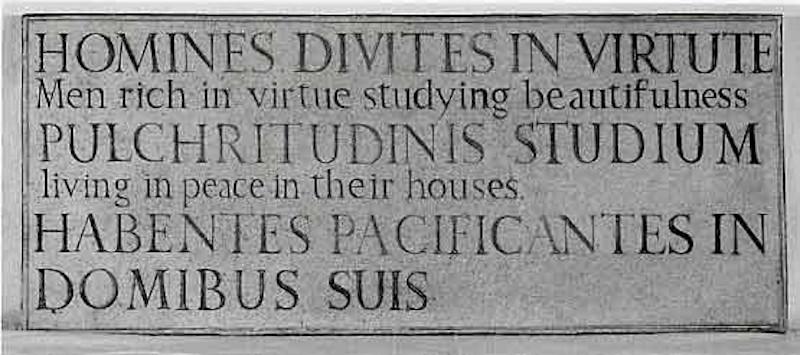 HOMINES DIVITES IN VIRTUTE
Men rich in virtue studying beautifulness
PULCHRITUDINIS STUDIUM
living in peace in their houses.
HABENTES PACIFICANTES IN
DOMIBUS SUIS